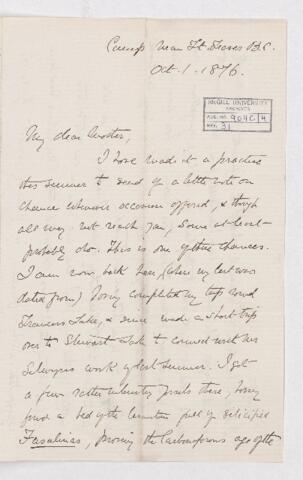 Camp near Ft Fraser B.C.
Oct. 1. 1876.
McGILL UNIVERSITY
ARCHIVES
ACC. NO. 909C/4
REF. 31
My dear Mother,
I have made it a practice
this summer to send you a little note on
chance whenever occasion offered, & though
all may not reach you, some at least
probably do. This is one of the chances.
I am now back here (where my last was
dated from) having completed my trip round
Francois Lake, & since made a short trip
over to Stewart Lake to connect with Mr
Selwyns work of last summer. I got
a few rather interesting fossils there, having
found a bed of the limestone full of silicified
Fusulinas, proving the Carboniferous age of the